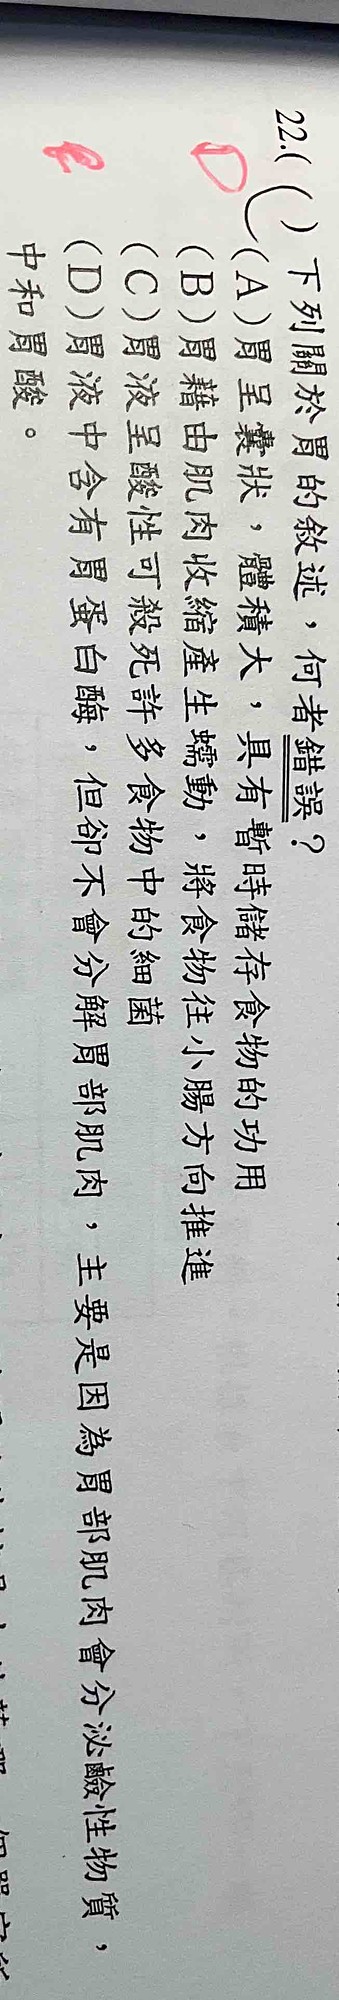 22.( C ) 下列關於胃的敘述，何者錯誤？
D
(A)胃呈囊狀，體積大，具有暫時儲存食物的功用
(B)胃藉由肌肉收縮產生蠕動，將食物往小腸方向推進
(C)胃液呈酸性可殺死許多食物中的細菌
(D)胃液中含有胃蛋白酶，但卻不會分解胃部肌肉，主要是因為胃部肌肉會分泌鹼性物質，
中和胃酸。